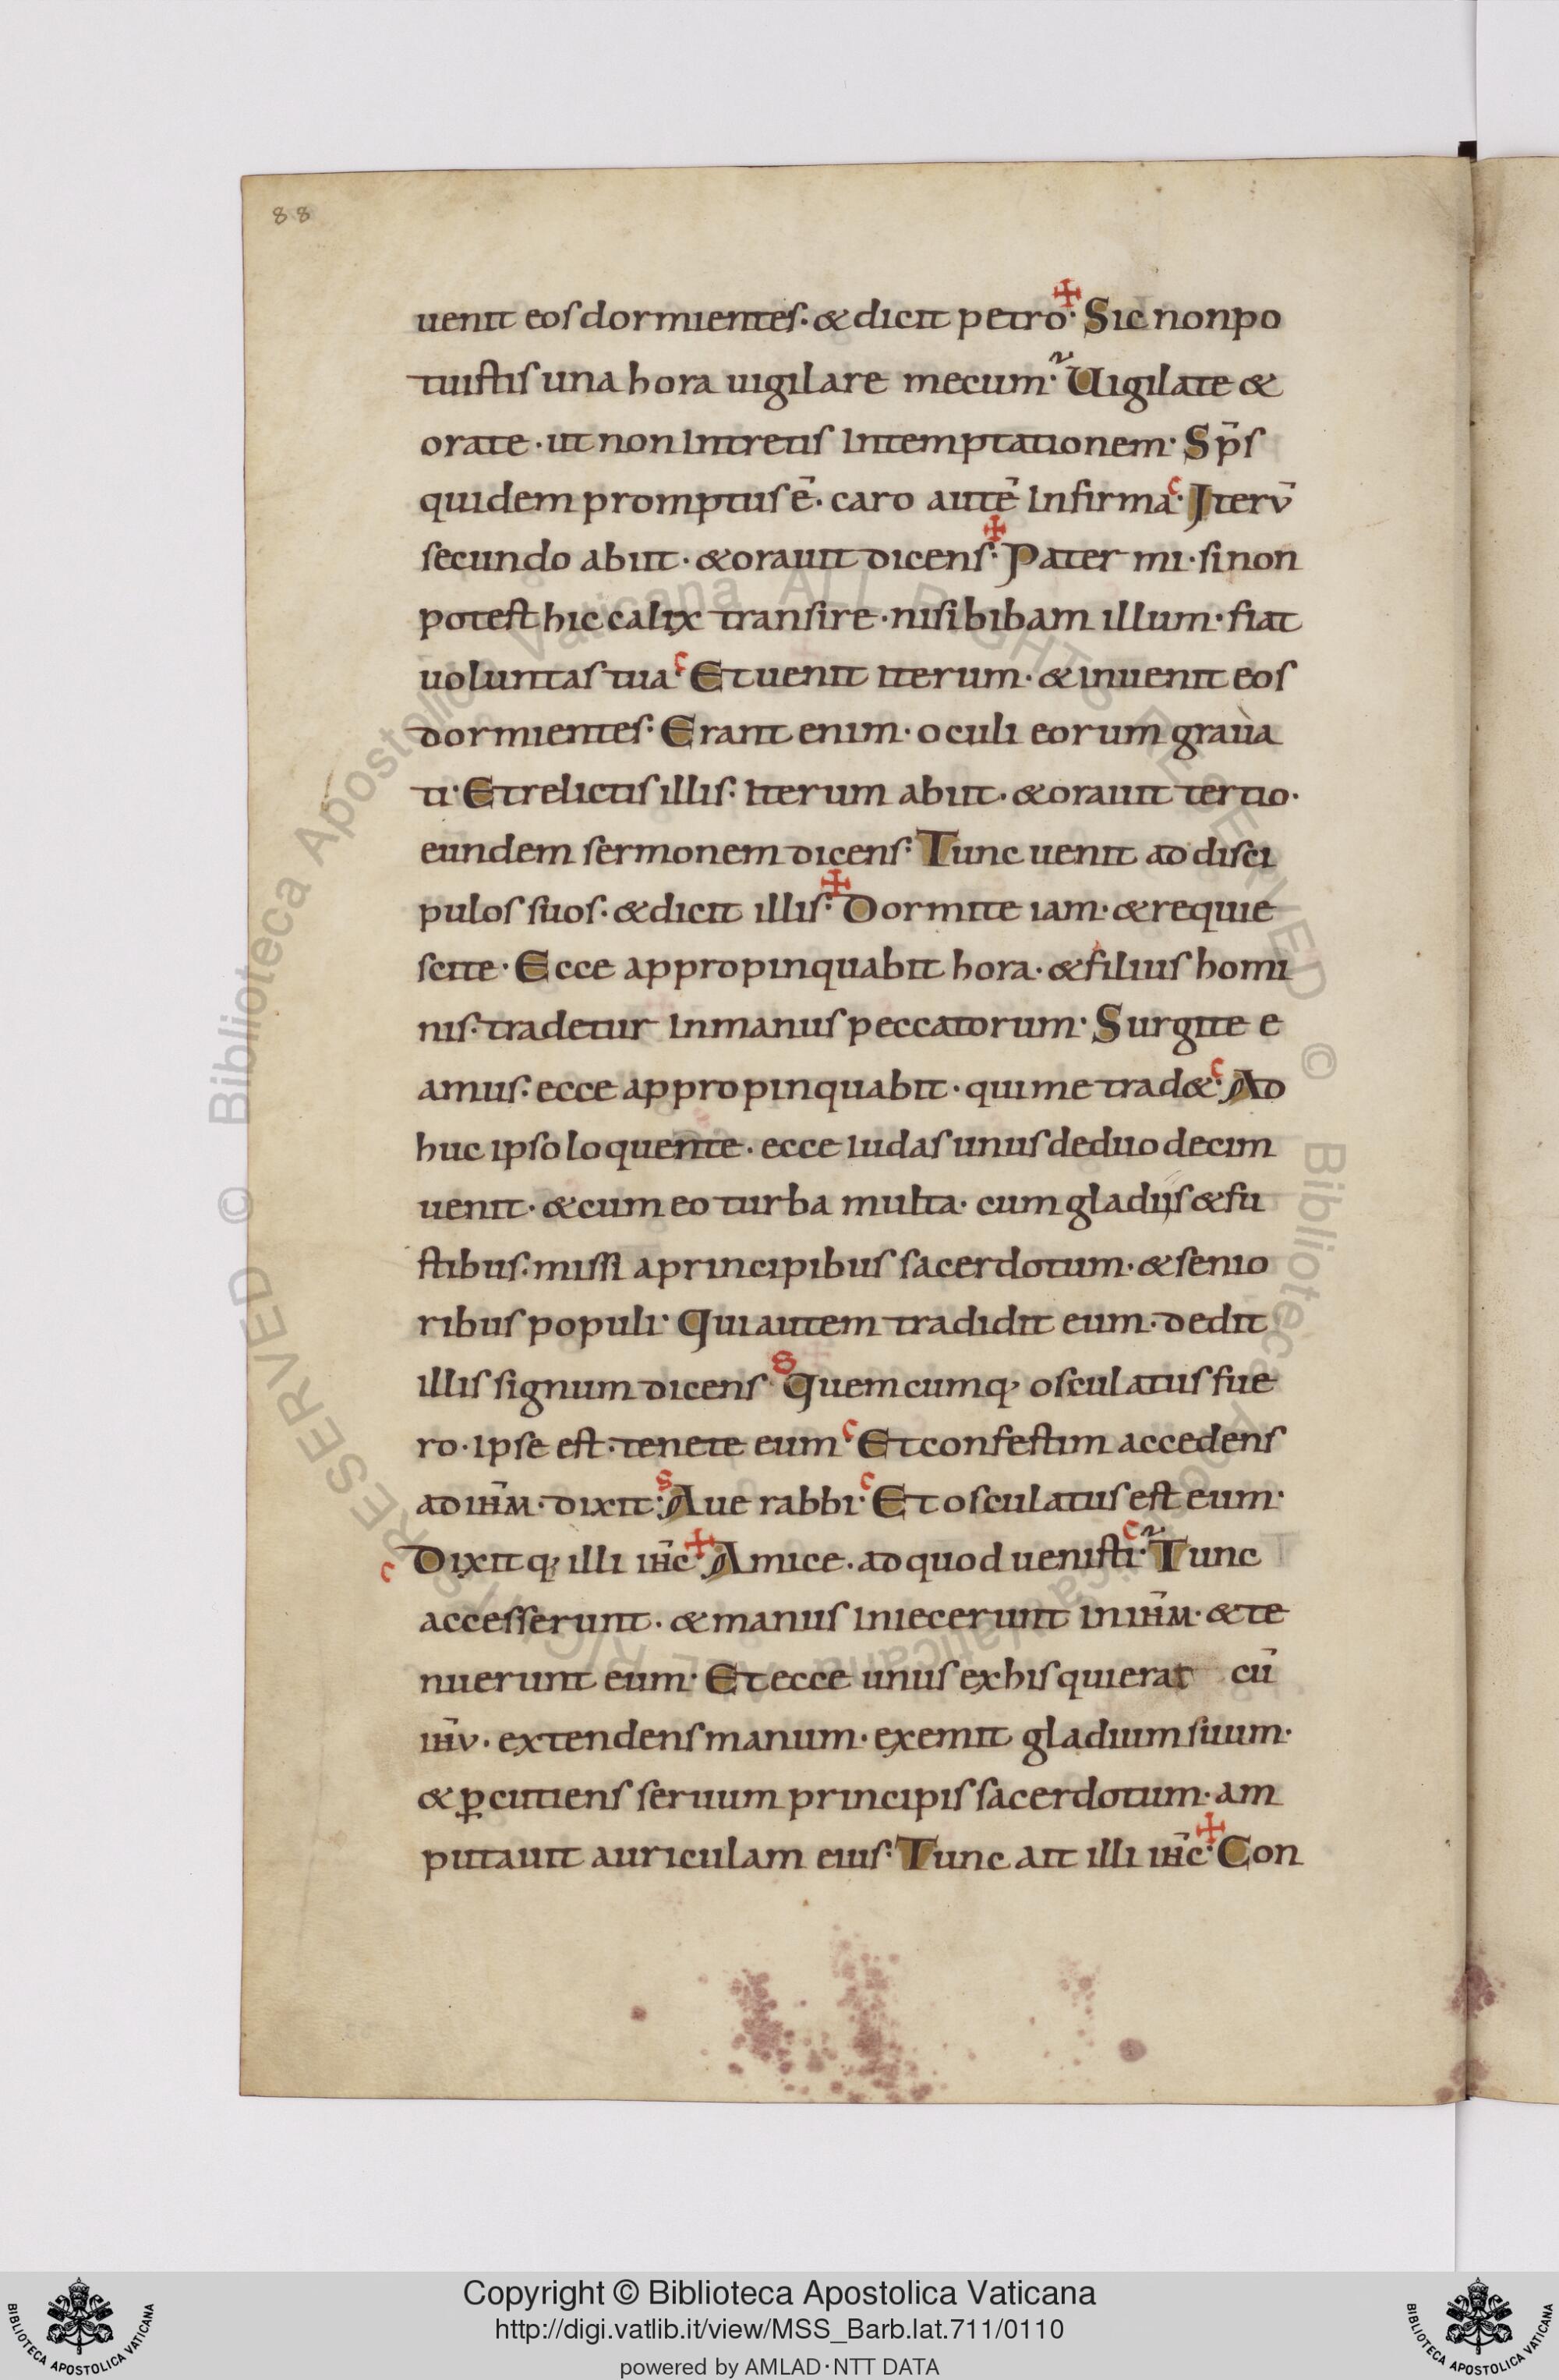 88
uenit eos dormientes· & dicit petro· ✠ Sic non po
tuistis una hora uigilare mecum· Uigilate &
orate· ut non intretis in temptationem· Sp̄s
quidem promptus ē· caro autē infirma· c Iterū
secundo abiit· & orauit dicens· ✠ Pater mi· si non
potest hic calix transire· nisi bibam illum· fiat
uoluntas tua· c Et uenit iterum· & inuenit eos
dormientes· Erant enim· oculi eorum graua
ti· Et relictis illis· iterum abiit· & orauit tertio·
eundem sermonem dicens· Tunc uenit ad disci
pulos suos· & dicit illis· ✠ Dormite iam· & requie
scite· Ecce appropinquabit hora· & filius homi
nis· tradetur in manus peccatorum· Surgite e
amus· ecce appropinquabit· qui me trad&· c Ad
huc ipso loquente· ecce iudas unus de duodecim
uenit· & cum eo turba multa· cum gladiis & fu
stibus· missi a principibus sacerdotum· & senio
ribus populi· Qui autem tradidit eum· dedit
illis signum dicens· s Quemcumq; osculatus fue
ro· ipse est· tenete eum· c Et confestim accedens
ad ih̄m· dixit· s Aue rabbi· c Et osculatus est eum·
c Dixitq; illi ih̄c· ✠ Amice· ad quod uenisti· c Tunc
accesserunt· & manus iniecerunt in ih̄m· & te
nuerunt eum· Et ecce unus ex his qui erat cū
ih̄u· extendens manum· exemit gladium suum·
& ꝑcutiens seruum principis sacerdotum· am
putauit auriculam eius· Tunc ait illi ih̄c· ✠ Con
© Biblioteca Apostolica Vaticana ALL RIGHTS RESERVED
© Biblioteca Apostolica Vaticana ALL RIGHTS RESERVED
Copyright © Biblioteca Apostolica Vaticana
http://digi.vatlib.it/view/MSS_Barb.lat.711/0110
powered by AMLAD·NTT DATA
BIBLIOTECA APOSTOLICA VATICANA
BIBLIOTECA APOSTOLICA VATICANA